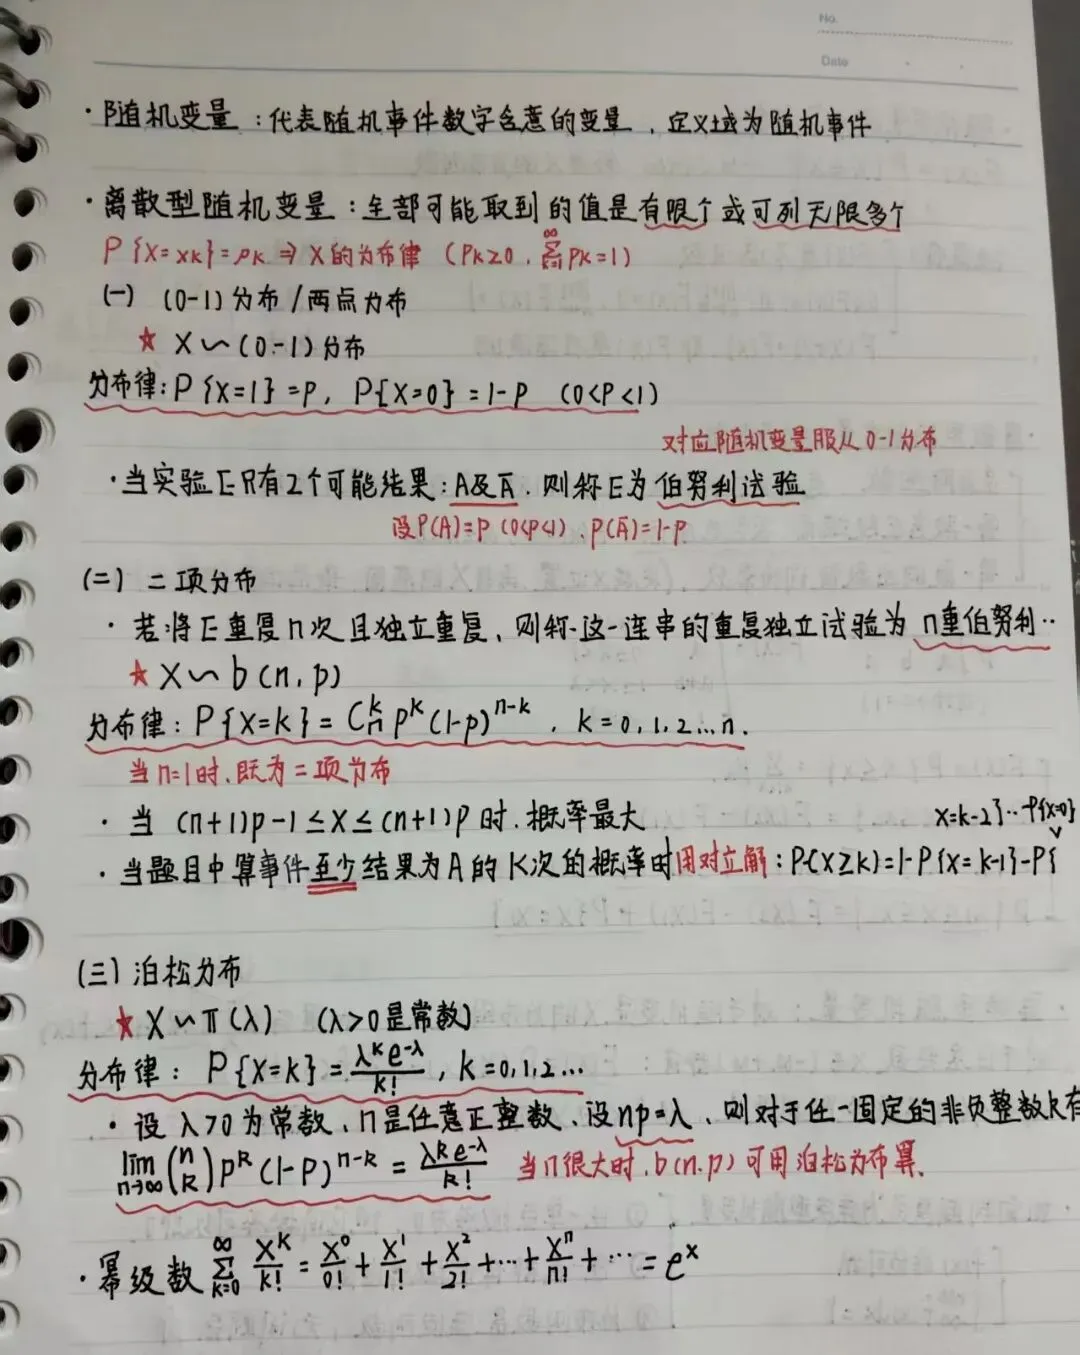 No.
Date
· 随机变量：代表随机事件数字含意的变量，定义域为随机事件
· 离散型随机变量：全部可能取到的值是有限个或可列无限多个
P{X=xk}=pk ⇒ X的分布律 (Pk≥0, ∞Σi=1 Pk=1)
(一) (0-1)分布/两点分布
★ X∽(0-1)分布
分布律：P{X=1}=p, P{X=0}=1-p (0<P<1)
对应随机变量服从0-1分布
· 当实验E只有2个可能结果：A及A̅，则称E为伯努利试验
设P(A)=p (0<p<1), p(A̅)=1-p
(二) 二项分布
· 若将E重复n次且独立重复，则称这一连串的重复独立试验为n重伯努利··
★ X∽b(n,p)
分布律：P{X=k}=Cₙᵏ pᵏ(1-p)ⁿ⁻ᵏ, k=0,1,2...n.
当n=1时，既为二项分布
· 当 (n+1)p-1≤X≤(n+1)p时，概率最大
X=k-2}···-P{X=0}
· 当题目中算事件至少结果为A的K次的概率时用对立解：P(X≥k)=1-P{X=k-1}-P{
(三) 泊松分布
★ X∽π(λ) (λ>0是常数)
分布律：P{X=k}=λᵏe⁻λ/k!, k=0,1,2...
· 设λ>0为常数，n是任意正整数，设np=λ，则对于任一固定的非负整数k有
lim n→∞ (n k) pᵏ(1-P)ⁿ⁻ᵏ=λᵏe⁻λ/k! 当n很大时，b(n,p)可用泊松分布算.
· 幂级数 ∞Σk=0 Xᵏ/k! = X⁰/0! + X¹/1! + X²/2! + ··· + Xⁿ/n! + ··· = eˣ